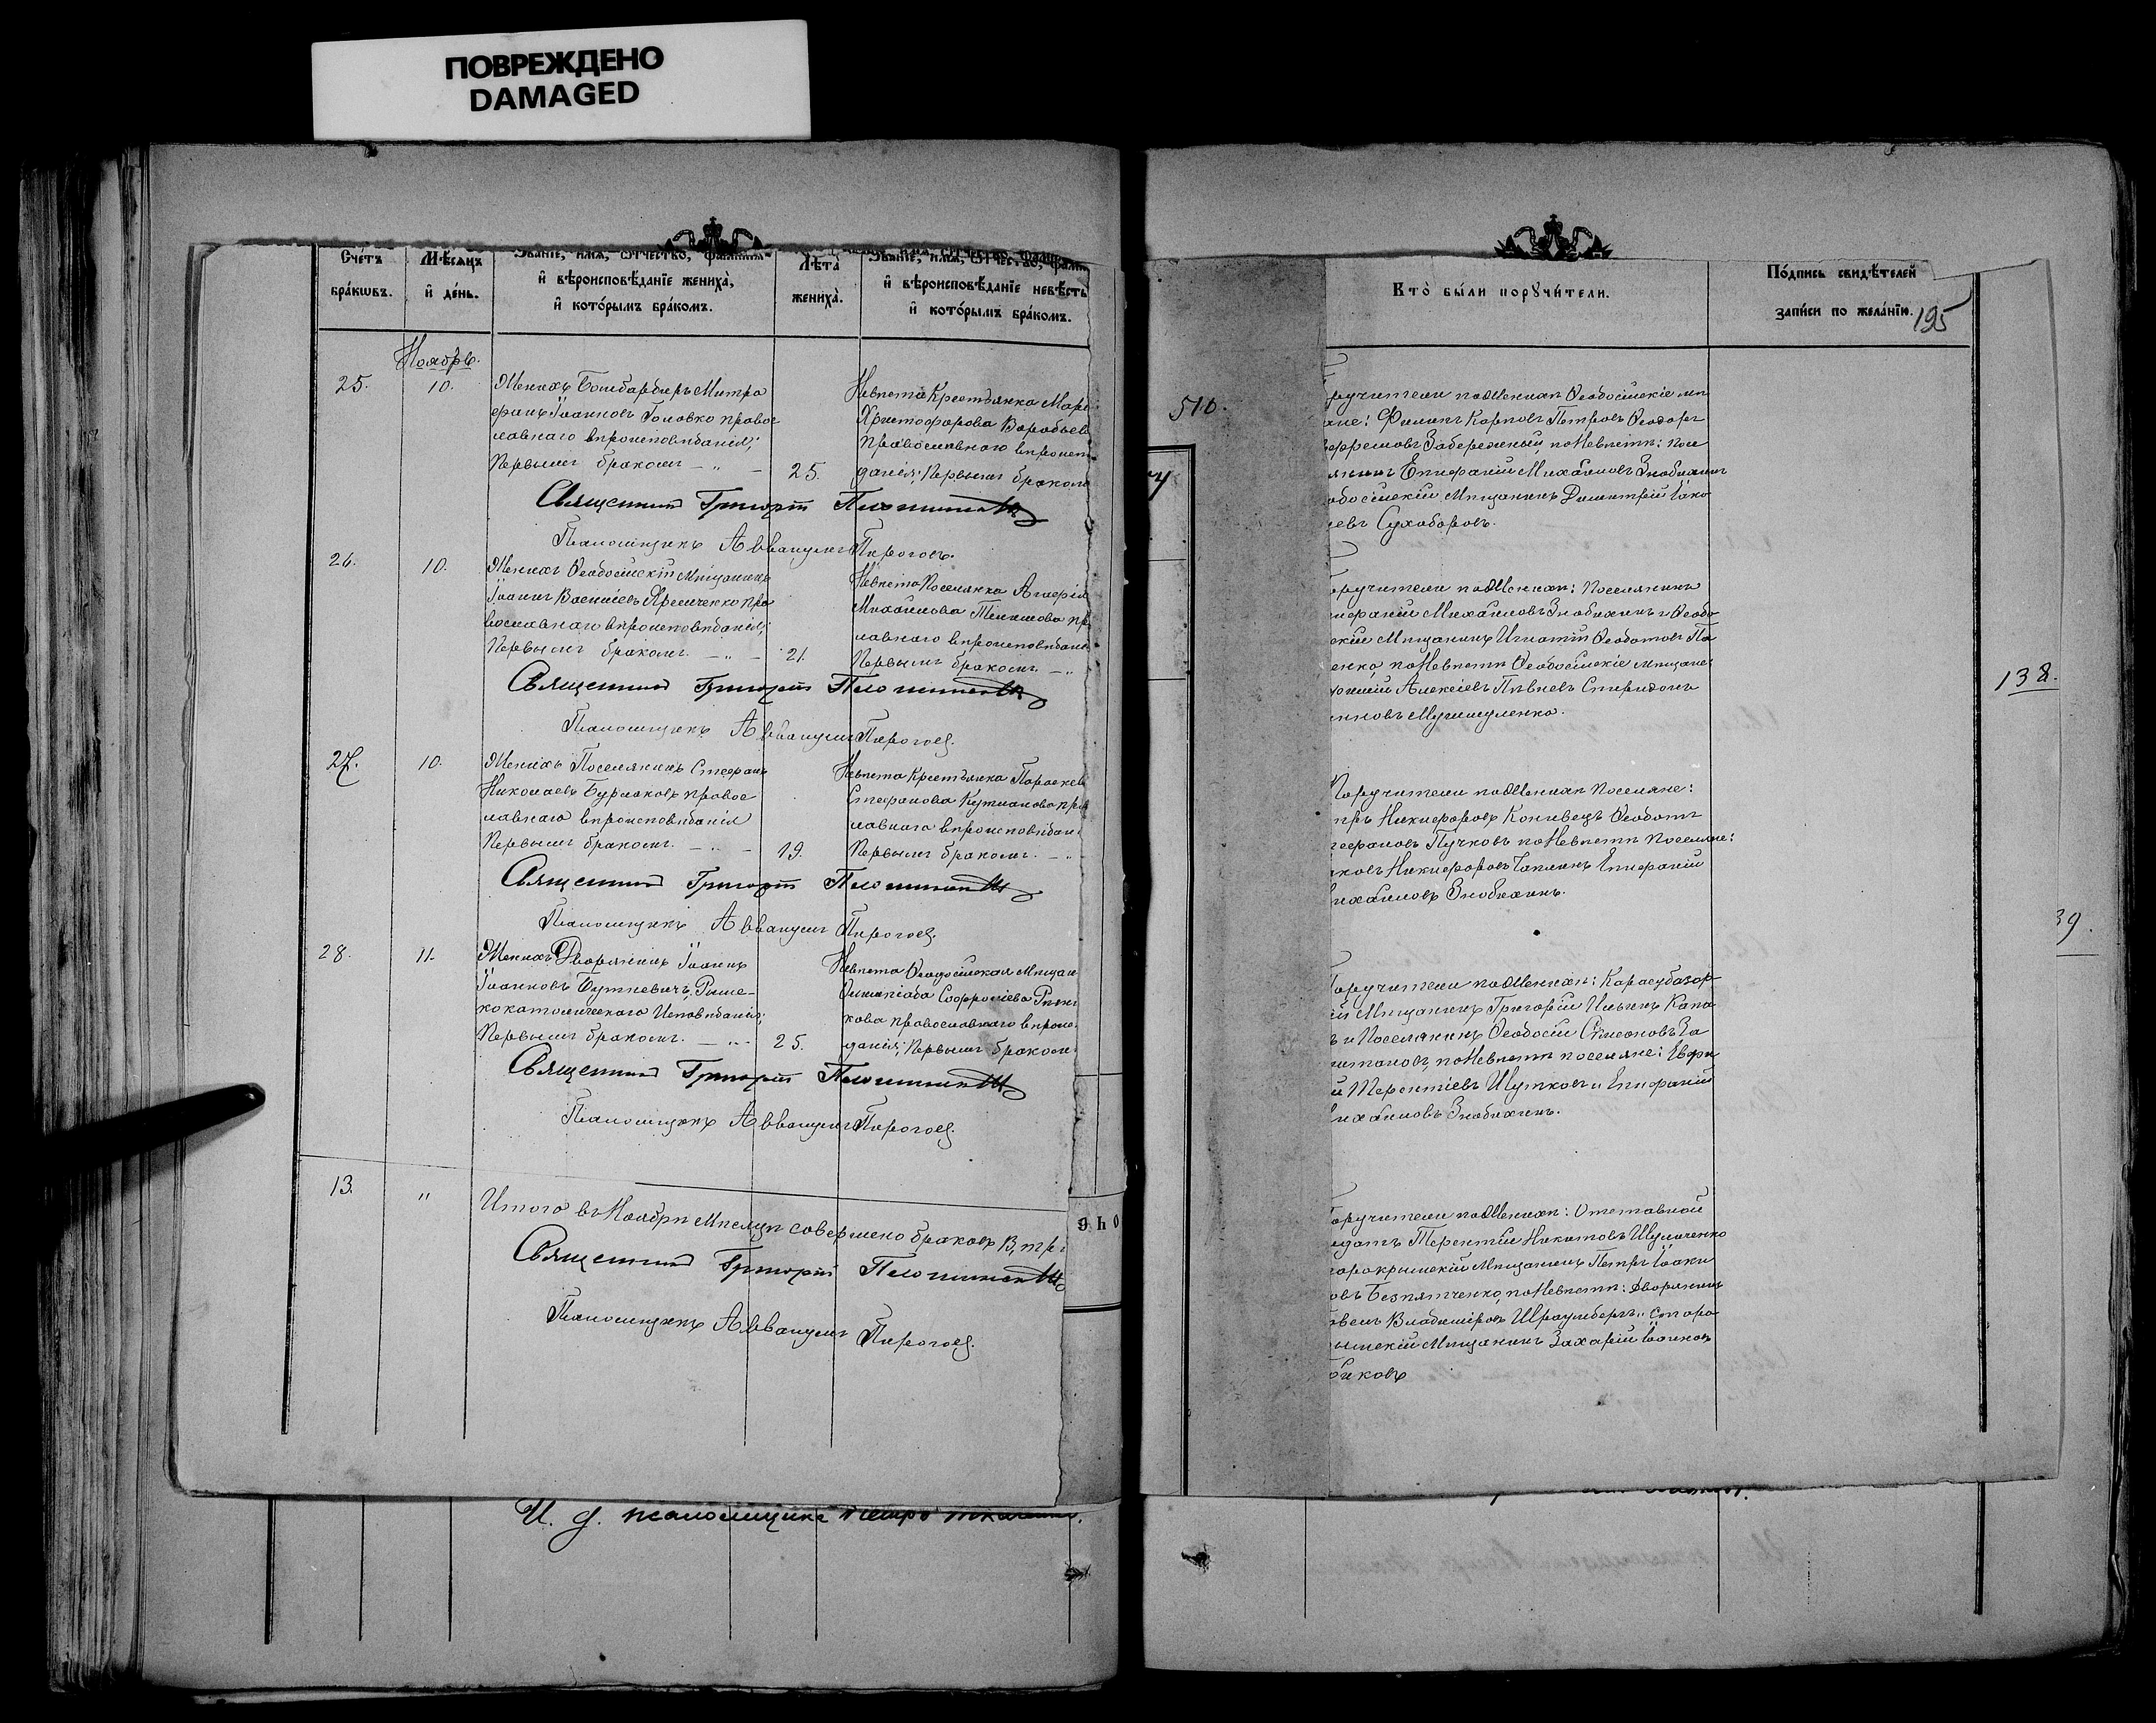 ПОВРЕЖДЕНО
DAMAGED
Счетъ
браковъ.
Мѣсяцъ
и день.
Званіе, имя, отчество,
и вѣроисповѣданіе жениха,
и которымъ бракомъ.
Лѣта
жениха.
Званіе, имя, отчество,
и вѣроисповѣданіе невѣсты
и которымъ бракомъ.
Ноябрь.
25.
10.
Женихъ Бомбардиръ Митро
фанъ Іоанновъ Головко правос
лавнаго вѣроисповѣданія;
Первымъ бракомъ — „ —
25.
Невѣста Крестьянка Мар
Христофорова Воробьев
Православнаго вѣроисп
данія; Первымъ бракомъ
Священникъ Григорій
Псаломщикъ Аввакумъ Пироговъ.
26.
10.
Женихъ Ѳеодосійскій Мѣщанинъ
Іоаннъ Василіевъ пра
вославнаго вѣроисповѣданія;
Первымъ бракомъ. — „ —
21.
Невѣста Поселянка
Михайлова пр
лавнаго вѣроисповѣдан
Первымъ бракомъ. — „
Священникъ Григорій
Псаломщикъ Аввакумъ Пироговъ.
27.
10.
Женихъ Поселянинъ Стефанъ
Николаевъ Бурлаковъ правос
лавнаго вѣроисповѣданія
Первымъ бракомъ. — „ —
19.
Невѣста Крестьянка Параскев
Стефанова пра
лавнаго вѣроисповѣдан
Первымъ бракомъ. — „
Священникъ Григорій
Псаломщикъ Аввакумъ Пироговъ.
28.
11.
Женихъ Дворянинъ Іоаннъ
Іоанновъ Буткевичъ, Римс-
кокатолическаго Исповѣданія;
Первымъ бракомъ. — „ —
25.
Невѣста Ѳеодосійская Мѣщан
Олимпіада Софроніева
кова православнаго вѣроис
данія; Первымъ бракомъ
Священникъ Григорій
Псаломщикъ Аввакумъ Пироговъ.
13.
„
Итого въ Ноябрѣ Мѣсяцѣ совершено браковъ 13, три
Священникъ Григорій
Псаломщикъ Аввакумъ Пироговъ.
И. д. псаломщика Петръ
Кто были поручители.
Подпись свидѣтелей
записи по желанію.
195
510.
ручители по Женихѣ Ѳеодосійскіе мѣ
не: Филиппъ Карповъ Петровъ Ѳеодоръ
Ефремовъ Забережный, по Невѣстѣ: Посе
янинъ Епифаній Михайловъ Знобихинъ
одосійскій Мѣщанинъ Димитрій Іако
левъ Сухоборовъ.
оручители по Женихѣ: Поселянинъ
ифаній Михайловъ Знобихинъ и Ѳеодо
скій Мѣщанинъ Игнатій Ѳеодотовъ Па
енко, по Невѣстѣ Ѳеодосійскіе мѣщане:
Алексіевъ Пѣвневъ Спиридонъ
нновъ
138.
Поручители по Женихѣ Поселяне:
тръ Никифоровъ Коновецъ Ѳеодотъ
тефановъ Пучковъ по Невѣстѣ Поселяне:
ковъ Никифоровъ Чаплинъ Епифаній
ихайловъ Знобихинъ.
39.
оручители по Женихѣ: Карасубазар
ій Мѣщанинъ Григорій Ильинъ Капа
ъ и Поселянинъ Ѳеодосій Симеоновъ Ка
питановъ, по Невѣстѣ поселяне: Евфи
й Терентіевъ Шутковъ и Епифаній
ихайловъ Знобихинъ.
оручители по Женихѣ: Отставной
лдатъ Терентій Никитовъ Шульченко
арокрымскій Мѣщанинъ Петръ Іоаки
овъ Безпятченко, по Невѣстѣ: Дворянинъ
Владиміровъ Штраумбергъ и Старо
рымскій Мѣщанинъ Захарій Іоанновъ